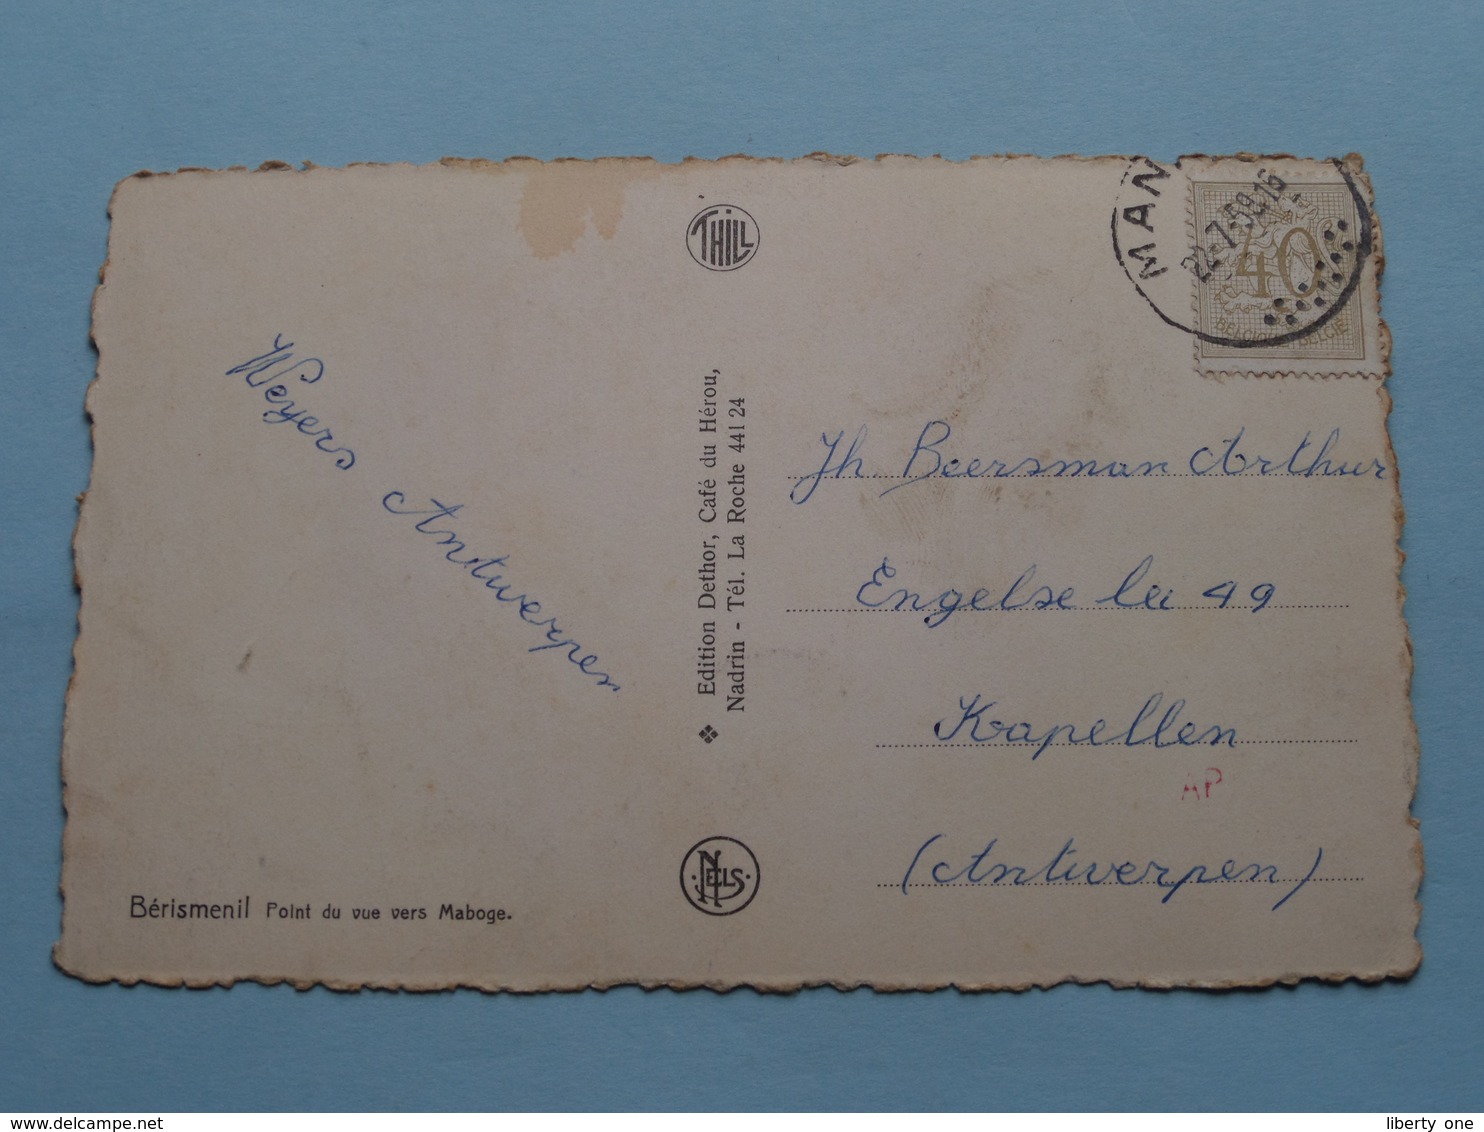 THILL
MAN
22-7-59.16
40
BELGIQUE-BELGIË
Weyers Antwerpen
❖ Edition Dethor, Café du Hérou,
Nadrin - Tél. La Roche 441 24
Jh. Beersman Arthur
Engelse lei 49
Kapellen
AP
(Antwerpen)
NELS
Bérismenil Point du vue vers Maboge.
delcampe.net
liberty one